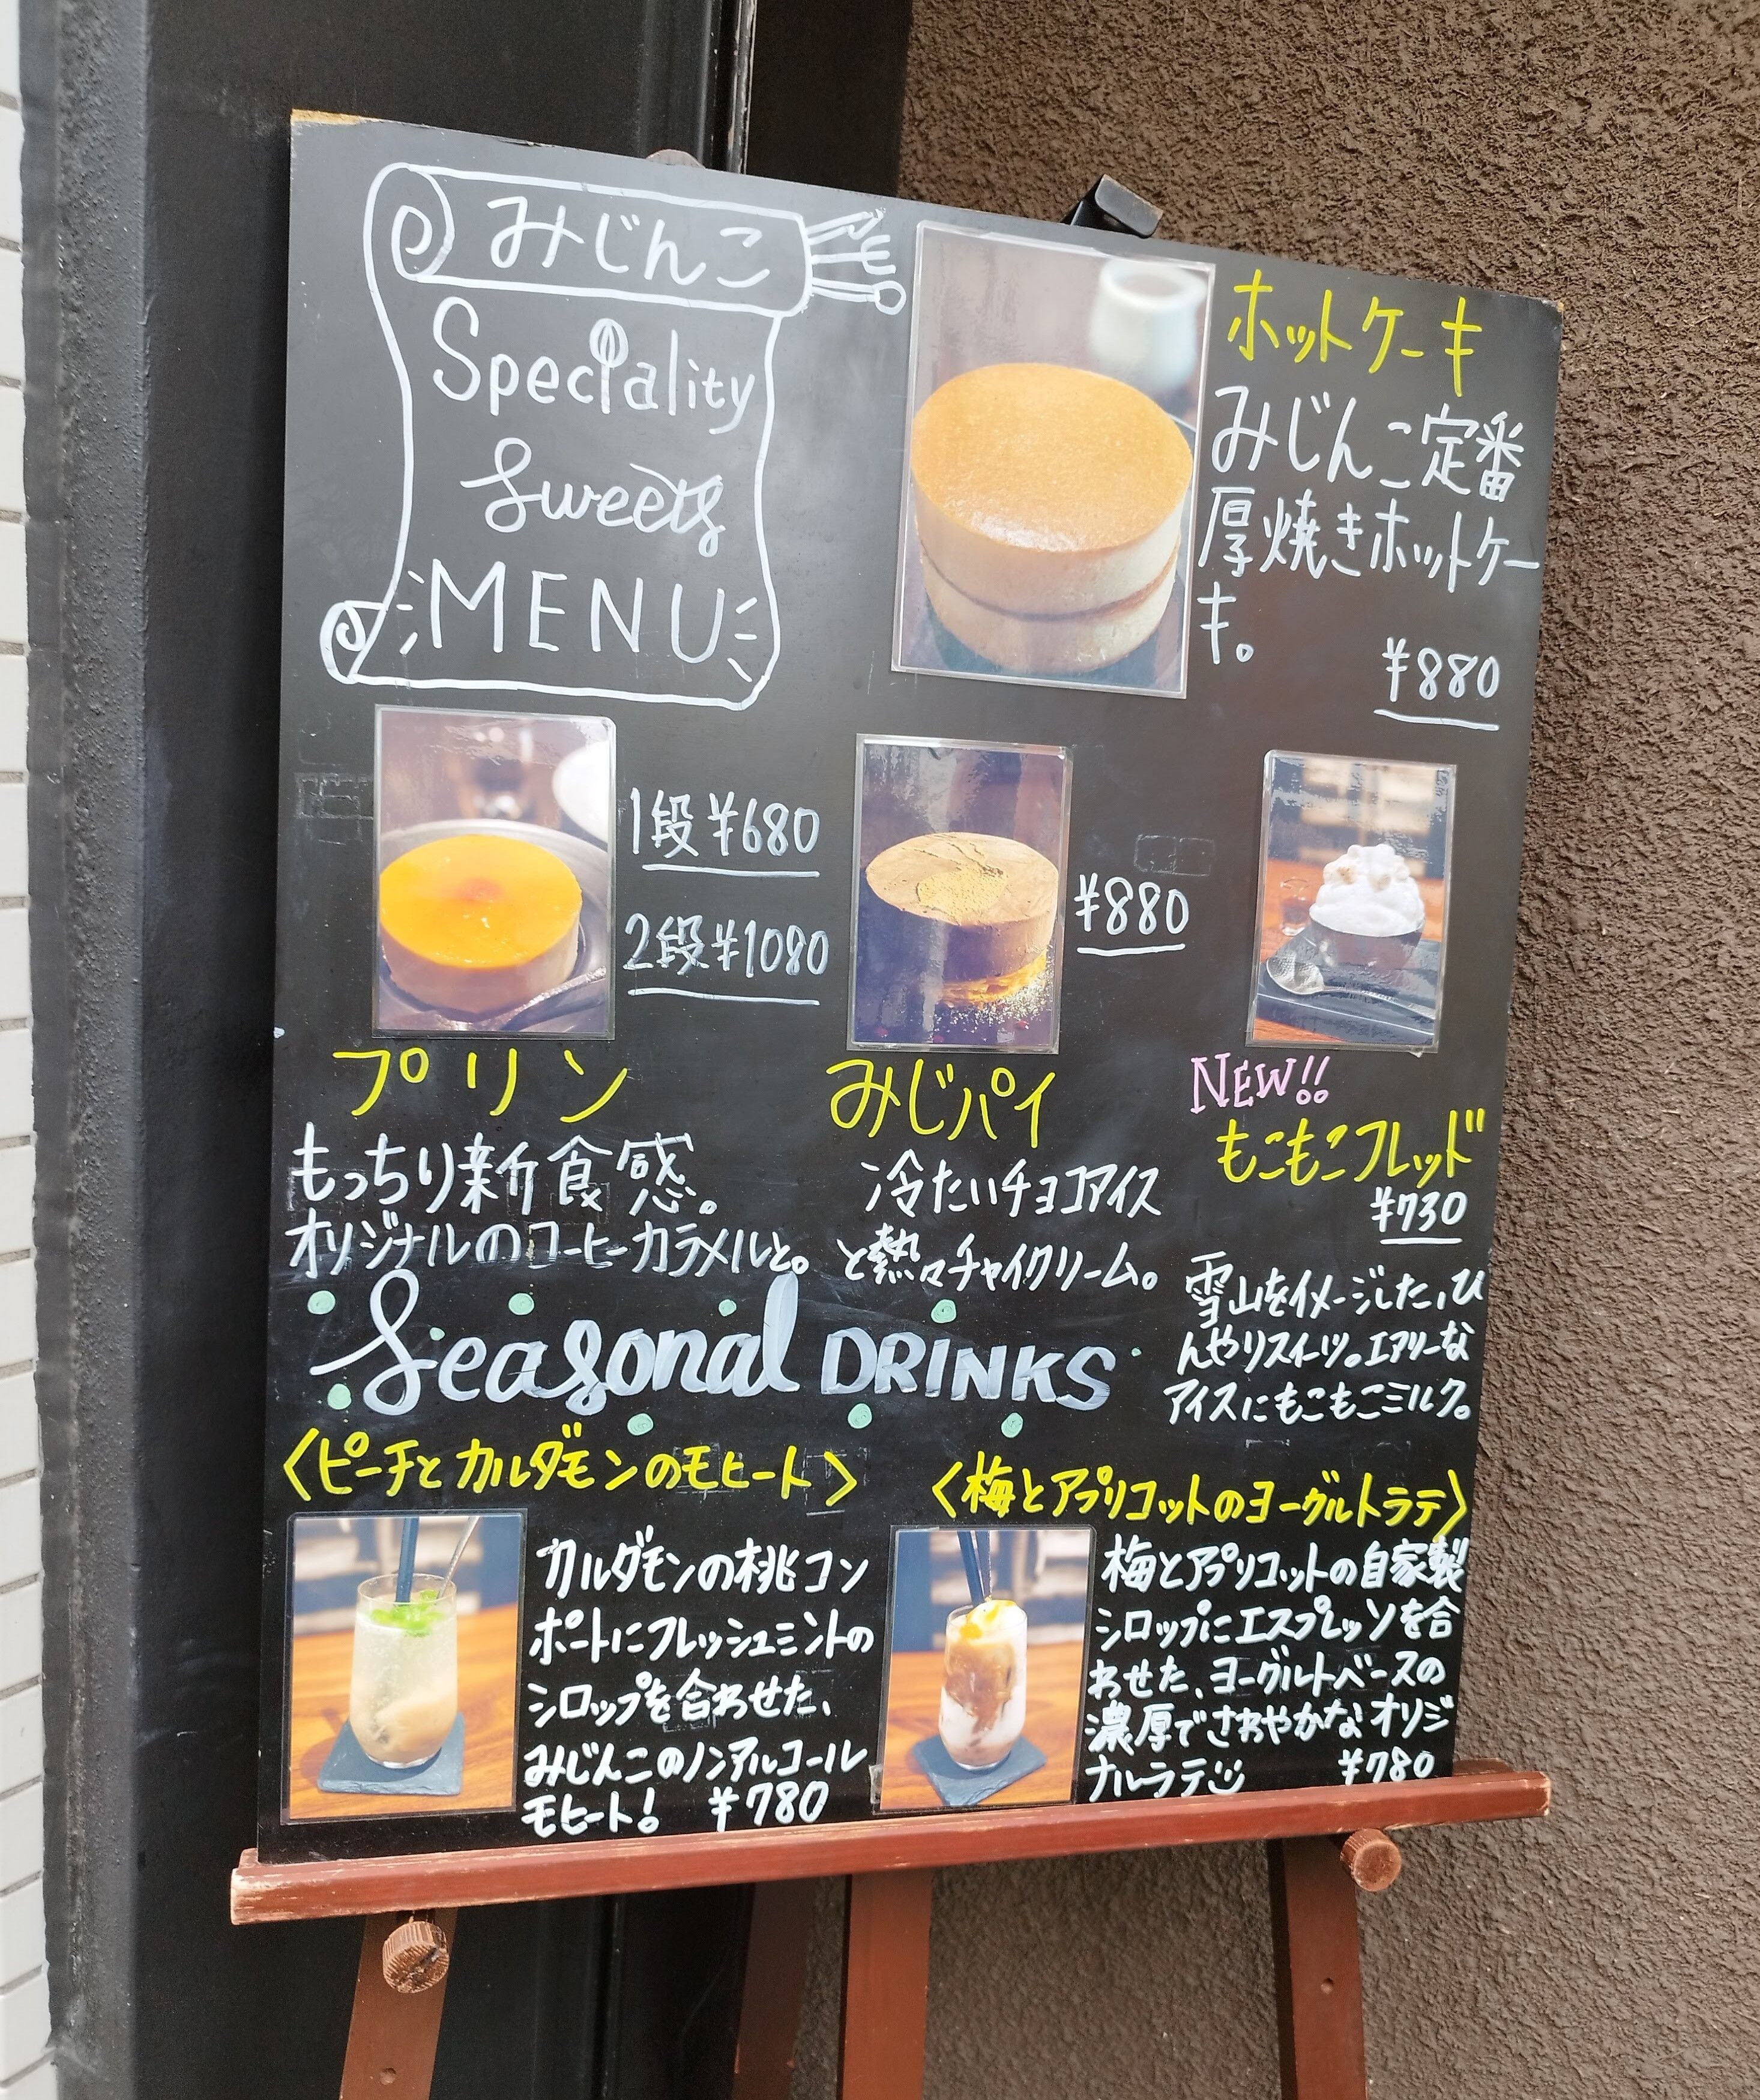 みじんこ
Speciality
Sweets
MENU
ホットケーキ
みじんこ定番
厚焼きホットケー
キ。
¥880
1段¥680
2段¥1080
プリン
もっちり新食感。
オリジナルのコーヒーカラメルと。
¥880
みじパイ
冷たいチョコアイス
と熱々チャイクリーム。
NEW!!
もこもこフレッド
¥730
雪山をイメージした、ひ
んやりスイーツ。エアリーな
アイスにもこもこミルク。
Seasonal DRINKS
〈ピーチとカルダモンのモヒート〉
カルダモンの桃コン
ポートにフレッシュミントの
シロップを合わせた、
みじんこのノンアルコール
モヒート! ¥780
〈梅とアプリコットのヨーグルトラテ〉
梅とアプリコットの自家製
シロップにエスプレッソを合
わせた、ヨーグルトベースの
濃厚でさわやかなオリジ
ナルラテ ¥780